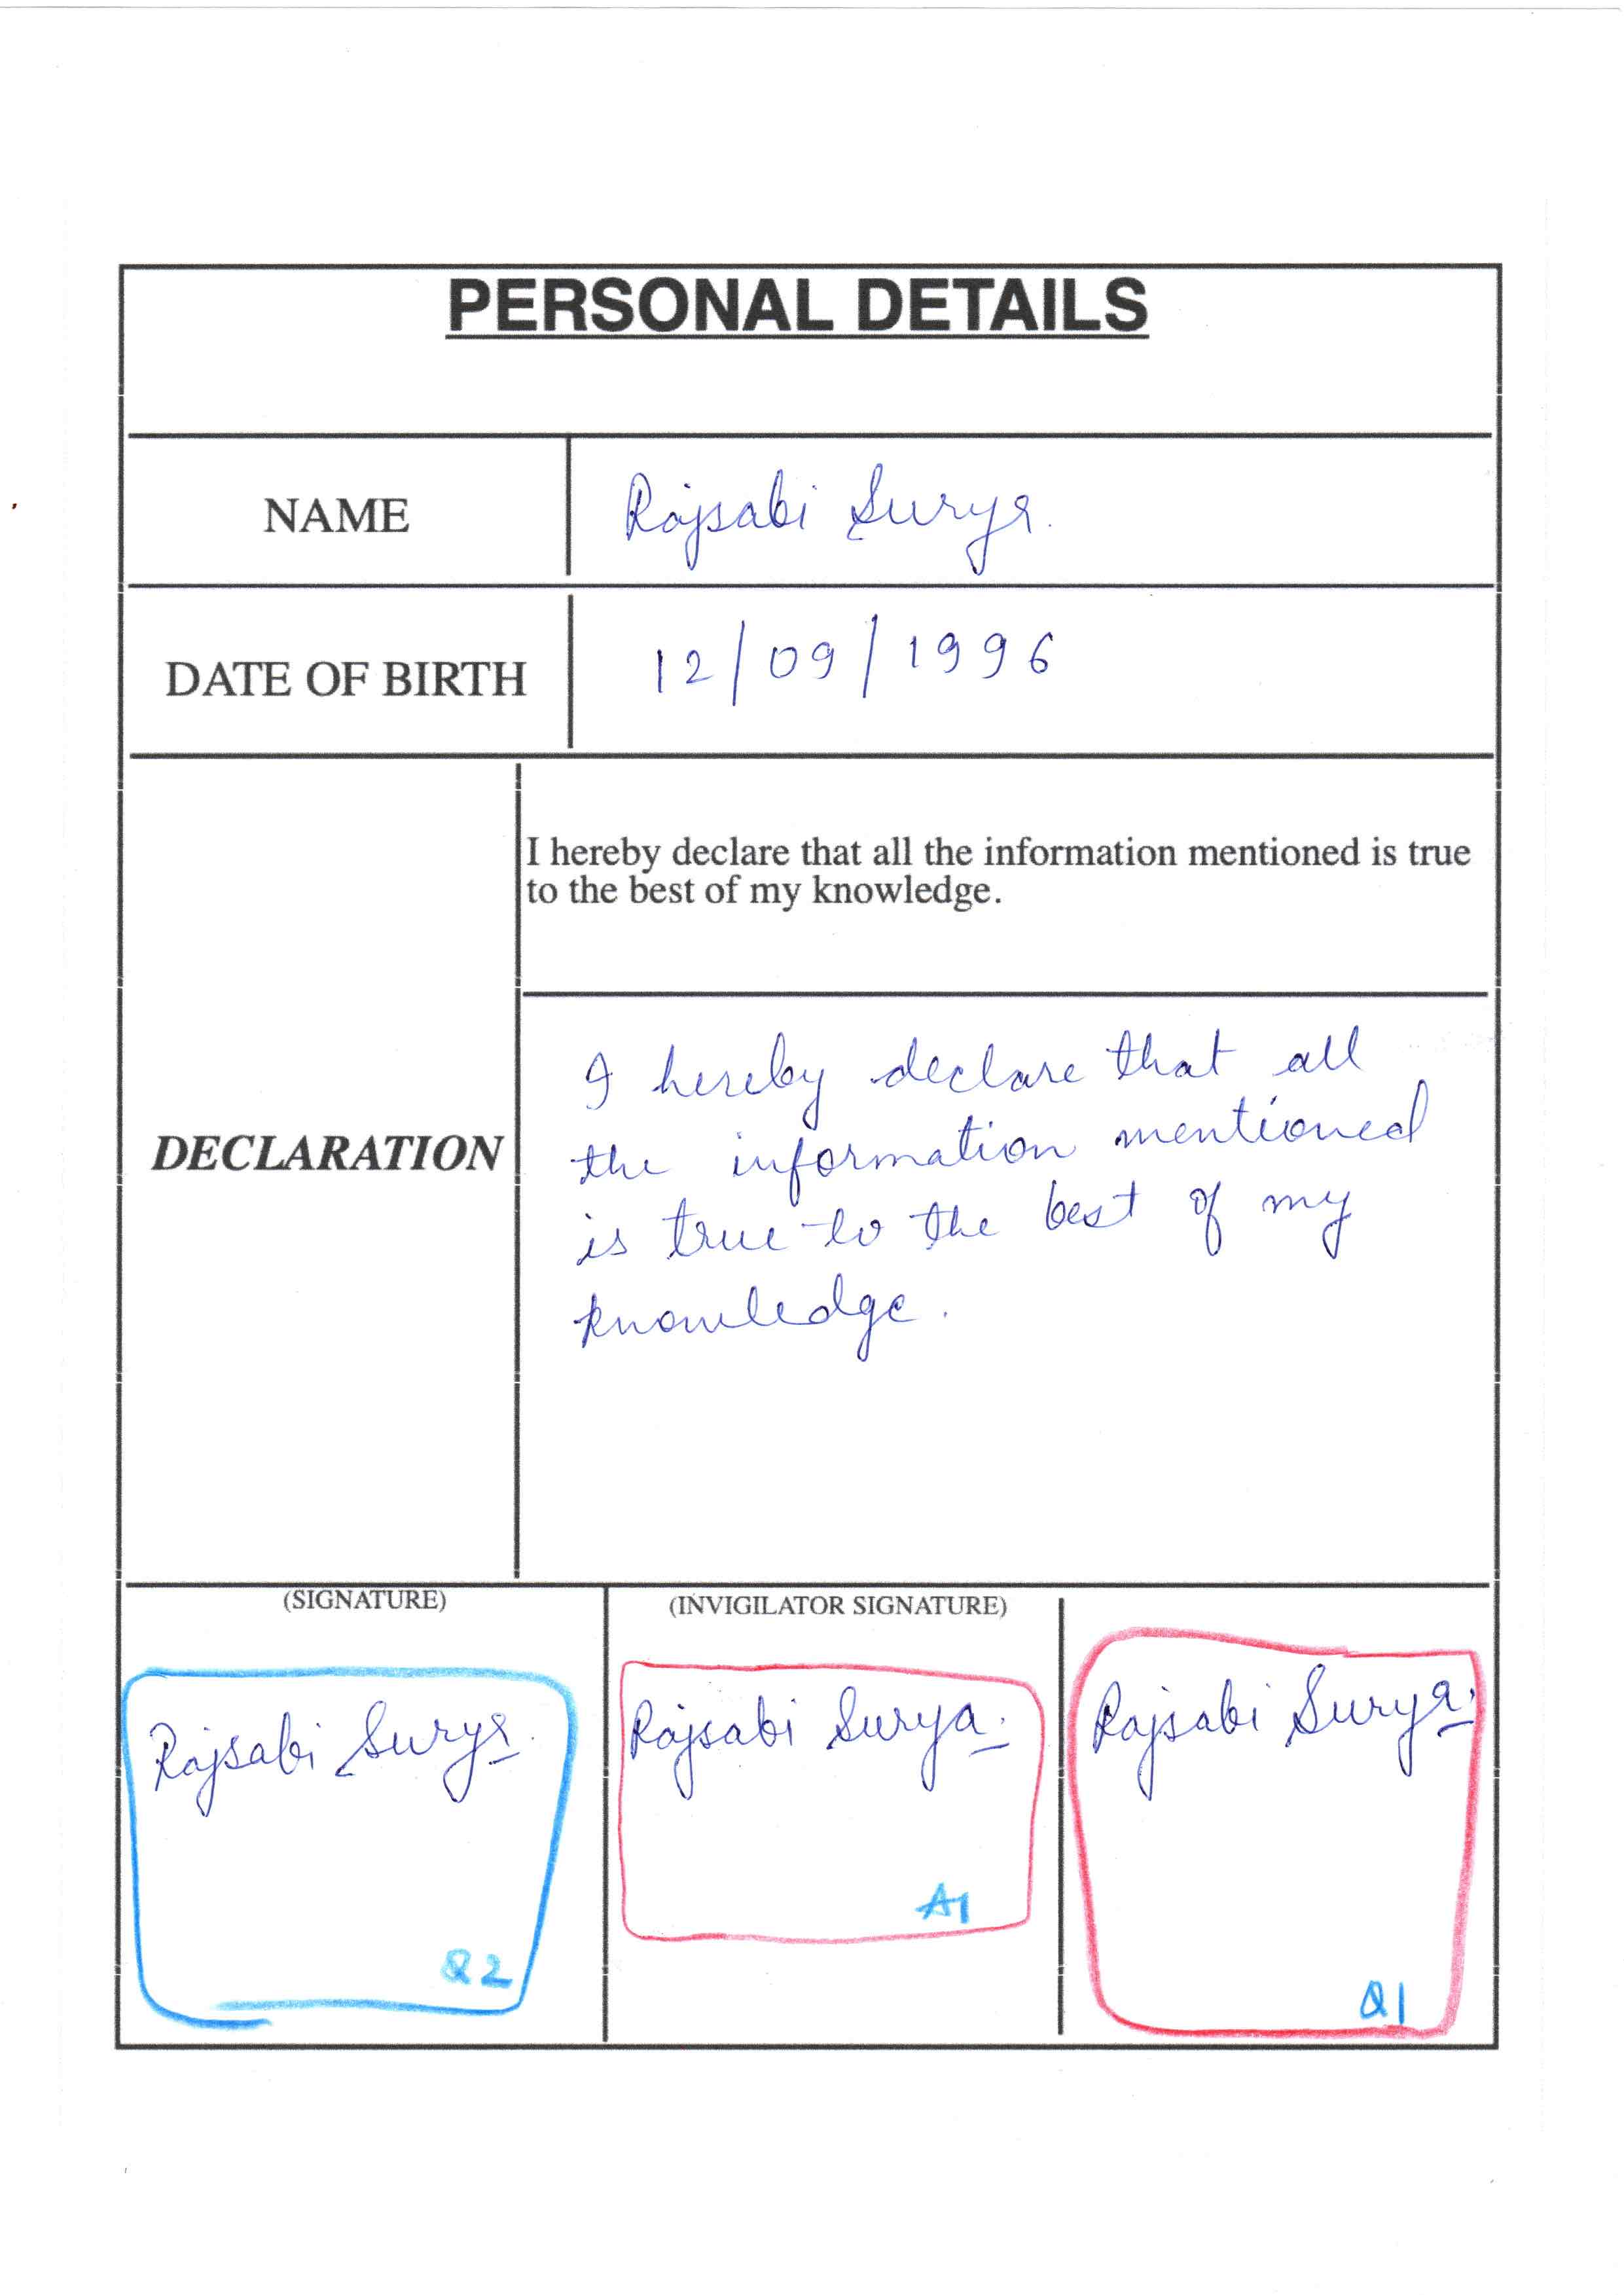 PERSONAL DETAILS
NAME
Rajsabi Surya.
DATE OF BIRTH
12/09/1996
DECLARATION
I hereby declare that all the information mentioned is true
to the best of my knowledge.
I hereby declare that all
the information mentioned
is true to the best of my
knowledge.
(SIGNATURE)
Rajsabi Surya.
Q2
(INVIGILATOR SIGNATURE)
Rajsabi Surya.
A1
Rajsabi Surya.
Q1